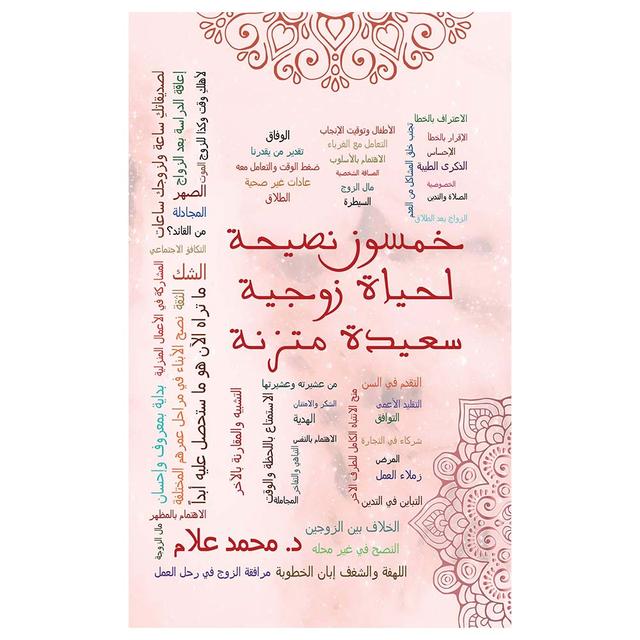 الاعتراف بالخطأ
الإقرار بالخطأ
الإحساس
الذكرى الطيبة
الخصوصية
الصلاة والتدين
الزواج بعد الطلاق
تجنب خلق المشاكل من العدم
الأطفال وتوقيت الإنجاب
التعامل مع الغرباء
الاهتمام بالأسلوب
الصداقة الشخصية
مال الزوج
السيطرة
الوفاق
تقدير من يقدرنا
ضغط الوقت والتعامل معه
عادات غير صحية
الطلاق
لأهلك وقت وكذا للزوج
الموت
إعاقة الدراسة بعد الزواج
لصديقاتك ساعة ولزوجك ساعات
الصهر
المجادلة
من القائد؟
التكافؤ الاجتماعي
الشك
خمسون نصيحة
لحياة زوجية
سعيدة متزنة
ما تراه الآن هو ما ستحصل عليه أبداً
الثقة
نصح الأبناء في مراحل عمرهم المختلفة
المشاركة في الأعمال المنزلية
بداية بمعروف وإحسان
الاهتمام بالمظهر
مال الزوجة
التقدم في السن
التقليد الأعمى
التوافق
شركاء في التجارة
المرض
زملاء العمل
التباين في التدين
منح الانتباه الكامل للطرف الآخر
من عشيرته وعشيرتها
الشكر والامتنان
الهدية
الاهتمام بالنفس
التباهي والتفاخر
المجاملة
الاستمتاع باللحظة والوقت
التشبيه والمقارنة بالآخر
الخلاف بين الزوجين
النصح في غير محله
د. محمد علام
اللهفة والشغف إبان الخطوبة
مرافقة الزوج في رحل العمل